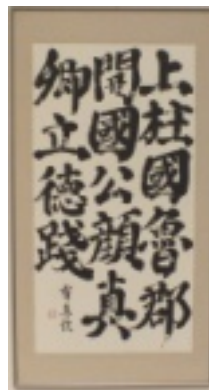 上柱國魯郡
開國公顏真
卿立德踐